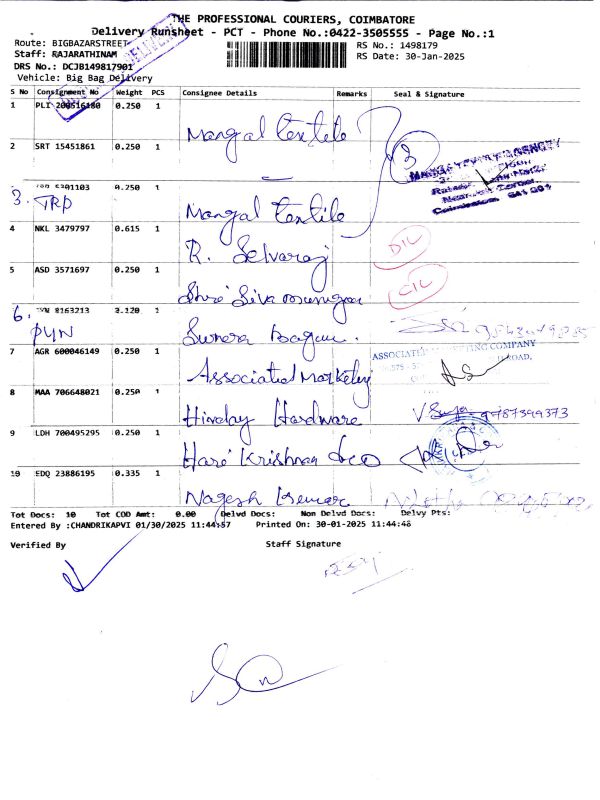 THE PROFESSIONAL COURIERS, COIMBATORE
Delivery Runsheet - PCT - Phone No.:0422-3505555 - Page No.:1
Route: BIGBAZARSTREET
Staff: RAJARATHINAM
DRS No.: DCJB149817901
Vehicle: Big Bag Delivery
RS No.: 1498179
RS Date: 30-Jan-2025
S No Consignment No Weight PCS Consignee Details Remarks Seal & Signature
1 PLI 200516180 0.250 1 Mangal Textile
2 SRT 15451861 0.250 1
3
3. TRP 0.250 1 Mangal Textile
4 NKL 3479797 0.615 1 R. Selvaraj
5 ASD 3571697 0.250 1 Shri Siva murugan
6. PYN 8163213 2.120 1
7 AGR 600046149 0.250 1 Associated Marketing
8 MAA 706648021 0.250 1 Hardware 9787399373
9 LDH 700495295 0.250 1 Hare Krishna &co
10 EDQ 23886195 0.335 1 Nagesh Kumar
Tot Docs: 10 Tot COD Amt: 0.00 Delvd Docs: Non Delvd Docs: Delvy Pts:
Entered By :CHANDRIKAPVI 01/30/2025 11:44:57 Printed On: 30-01-2025 11:44:48
Verified By Staff Signature